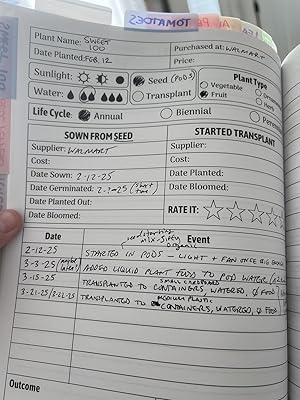 TOMATOES
Plant Name: SWEET
100
Purchased at: WALMART
Date Planted: FEB. 12
Price:
Sunlight:
Seed (PODS)
Plant Type
Water:
Transplant
Vegetable
Fruit
Life Cycle: Annual
Biennial
SOWN FROM SEED
STARTED TRANSPLANT
Supplier: WALMART
Supplier:
Cost:
Cost:
Date Sown: 2-12-25
Date Planted:
Date Germinated: 2-?-25 (short time)
Date Bloomed:
Date Planted Out:
RATE IT:
Date Bloomed:
Date
Event
seed starting
mix - 
organic
2-12-25
STARTED IN PODS - LIGHT + FAN ONCE BIG ENOUGH
3-3-25 (maybe later)
ADDED LIQUID PLANT FOOD TO POD WATER
small cardboard
3-15-25
TRANSPLANTED TO CONTAINERS, WATERED, Ø FOOD
medium plastic
3-21-25/3-22-25
TRANSPLANTED TO CONTAINERS, WATERED, Ø FOOD
Outcome